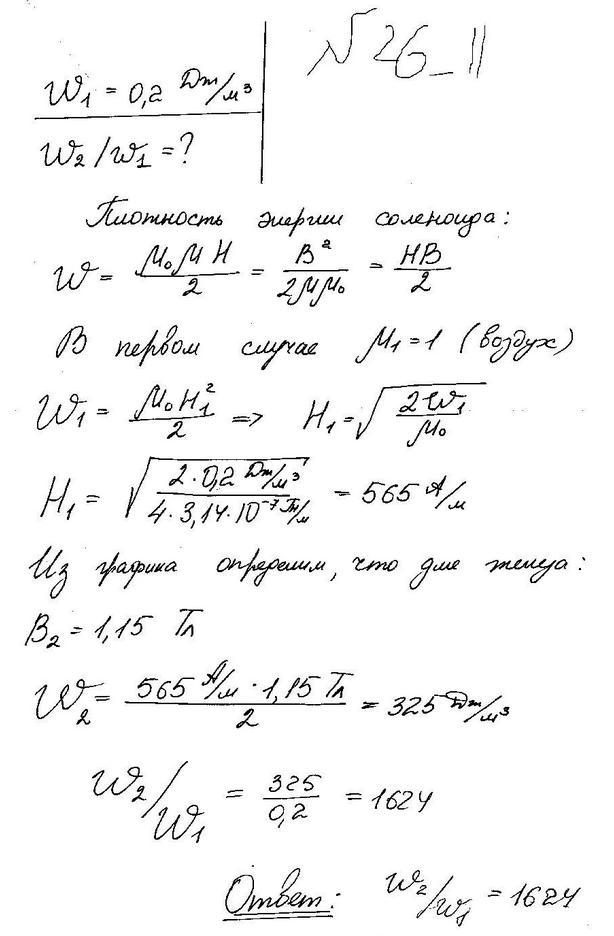 N 26_11
w₁ = 0,2 Дж/м³
w₂/w₁ = ?
Плотность энергии соленоида:
w = μ₀μH/2 = B²/2μμ₀ = HB/2
В первом случае μ₁ = 1 (воздух)
w₁ = μ₀H₁²/2 => H₁ = √(2w₁/μ₀)
H₁ = √(2·0,2 Дж/м³ / 4·3,14·10⁻⁷ Гн/м) = 565 А/м
Из графика определим, что для железа:
B₂ = 1,15 Тл
w₂ = 565 А/м · 1,15 Тл / 2 = 325 Дж/м³
w₂/w₁ = 325/0,2 = 1624
Ответ: w₂/w₁ = 1624